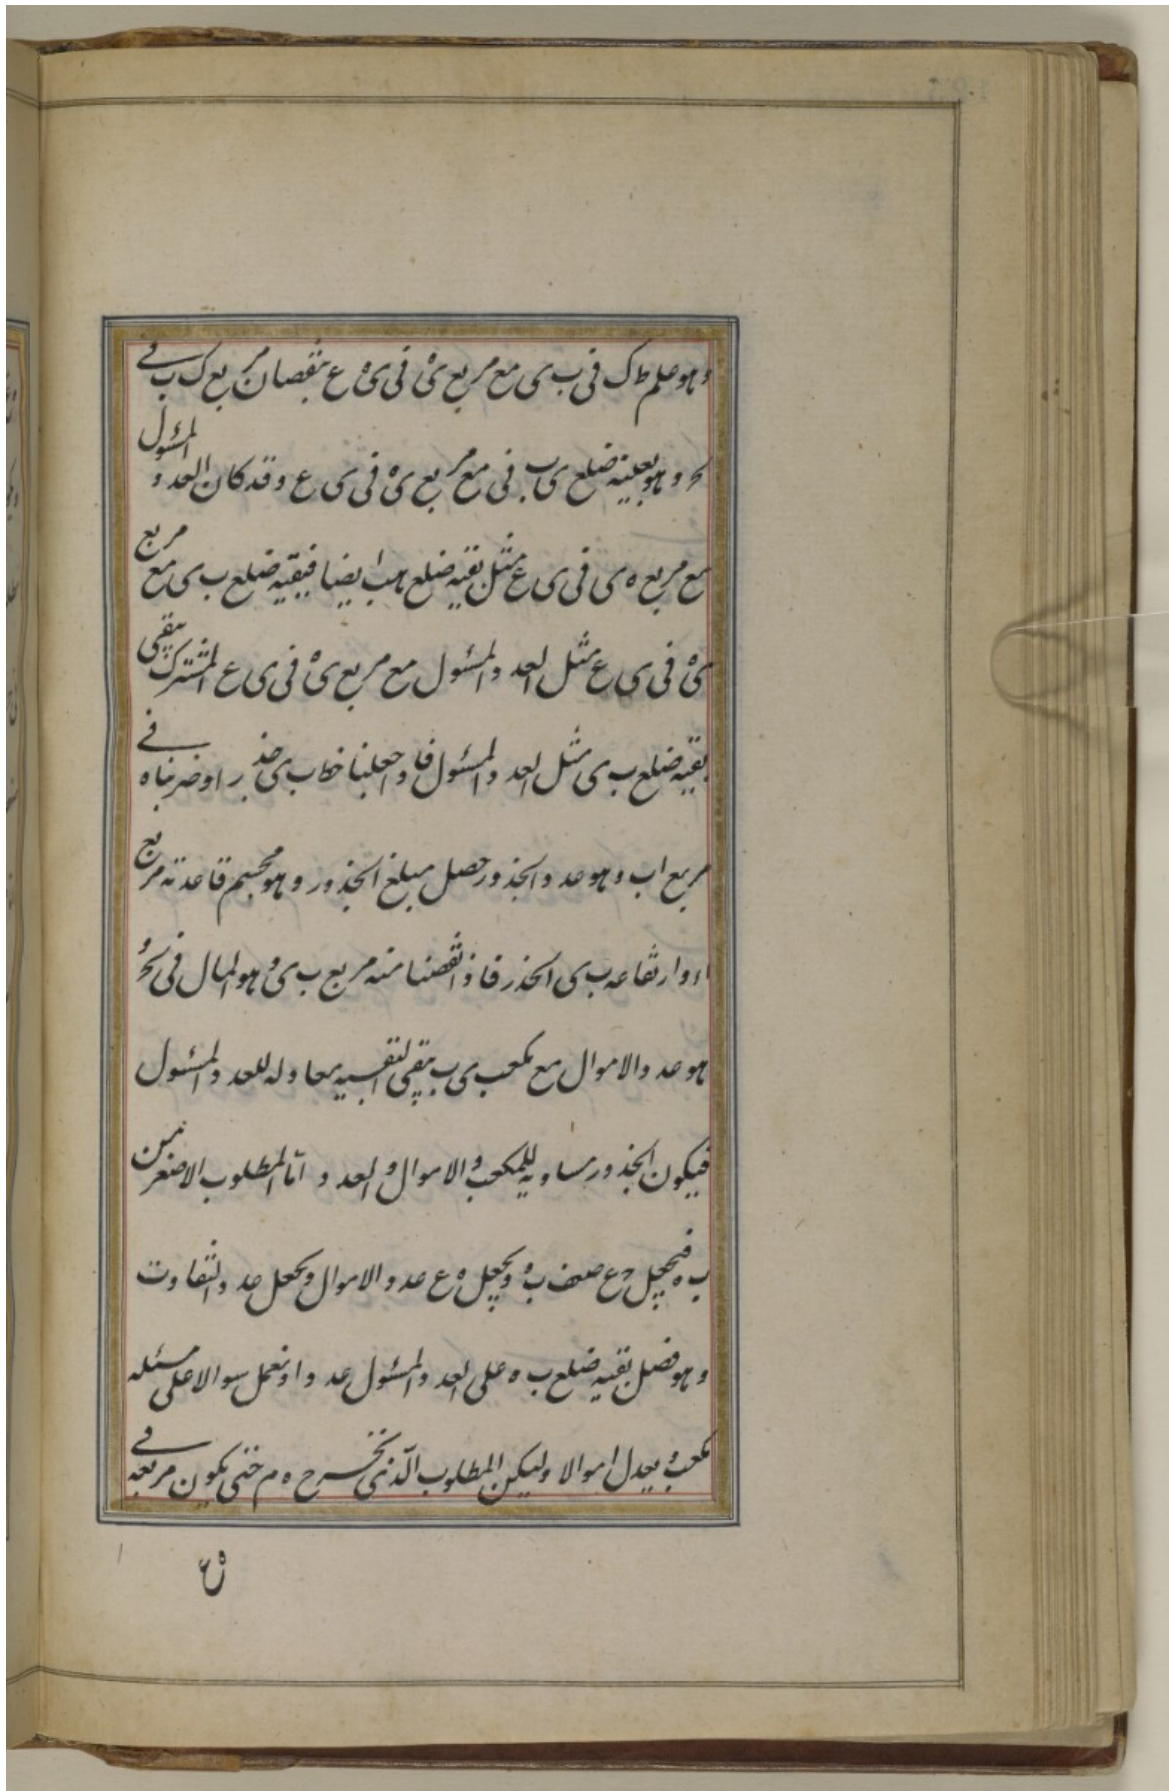 وهو علم ط ك فى ب ى مع مربع ى ه فى ى ه ع بنقصان مربع ك ب فى
ك ح وهو بعينه ضلع ى ب فى مع مربع ى ه فى ى ع وقد كان العدد المسئول
مع مربع ه ى فى ى ع مثل بقيه ضلع ه ب ايضا فبقيه ضلع ب ى مع مربع
ى ه فى ى ع مثل العدد المسئول مع مربع ى ه فى ى ع المشترك يبقى
بقيه ضلع ب ى مثل العدد المسئول فاذا جعلنا خط ب ى جذرا وضربناه فى
مربع اب وهو عدد الجذور حصل مبلغ الجذور وهو مجسم قاعدته مربع
اه وارتفاعه ب ى الجذر فاذا نقصنا منه مربع ب ى وهو المال فى ح ع و
هو عدد الاموال مع مكعب ى ب يبقى البقيه معادله للعدد المسئول
فيكون الجذور مساويه للمكعب والاموال والعدد واما المطلوب الاصغر من
ب ه فيجعل ح ع ضعف ب ه ويجعل ه ع عدد الاموال ويجعل عدد التفاوت
وهو فضل بقيه ضلع ب ه على العدد المسئول عددا ونعمل سوالا على مسئله
مكعب وعدد يعدل اموالا وليكن المطلوب الذى يخرج ه م حتى يكون مربعه فى
ه ع